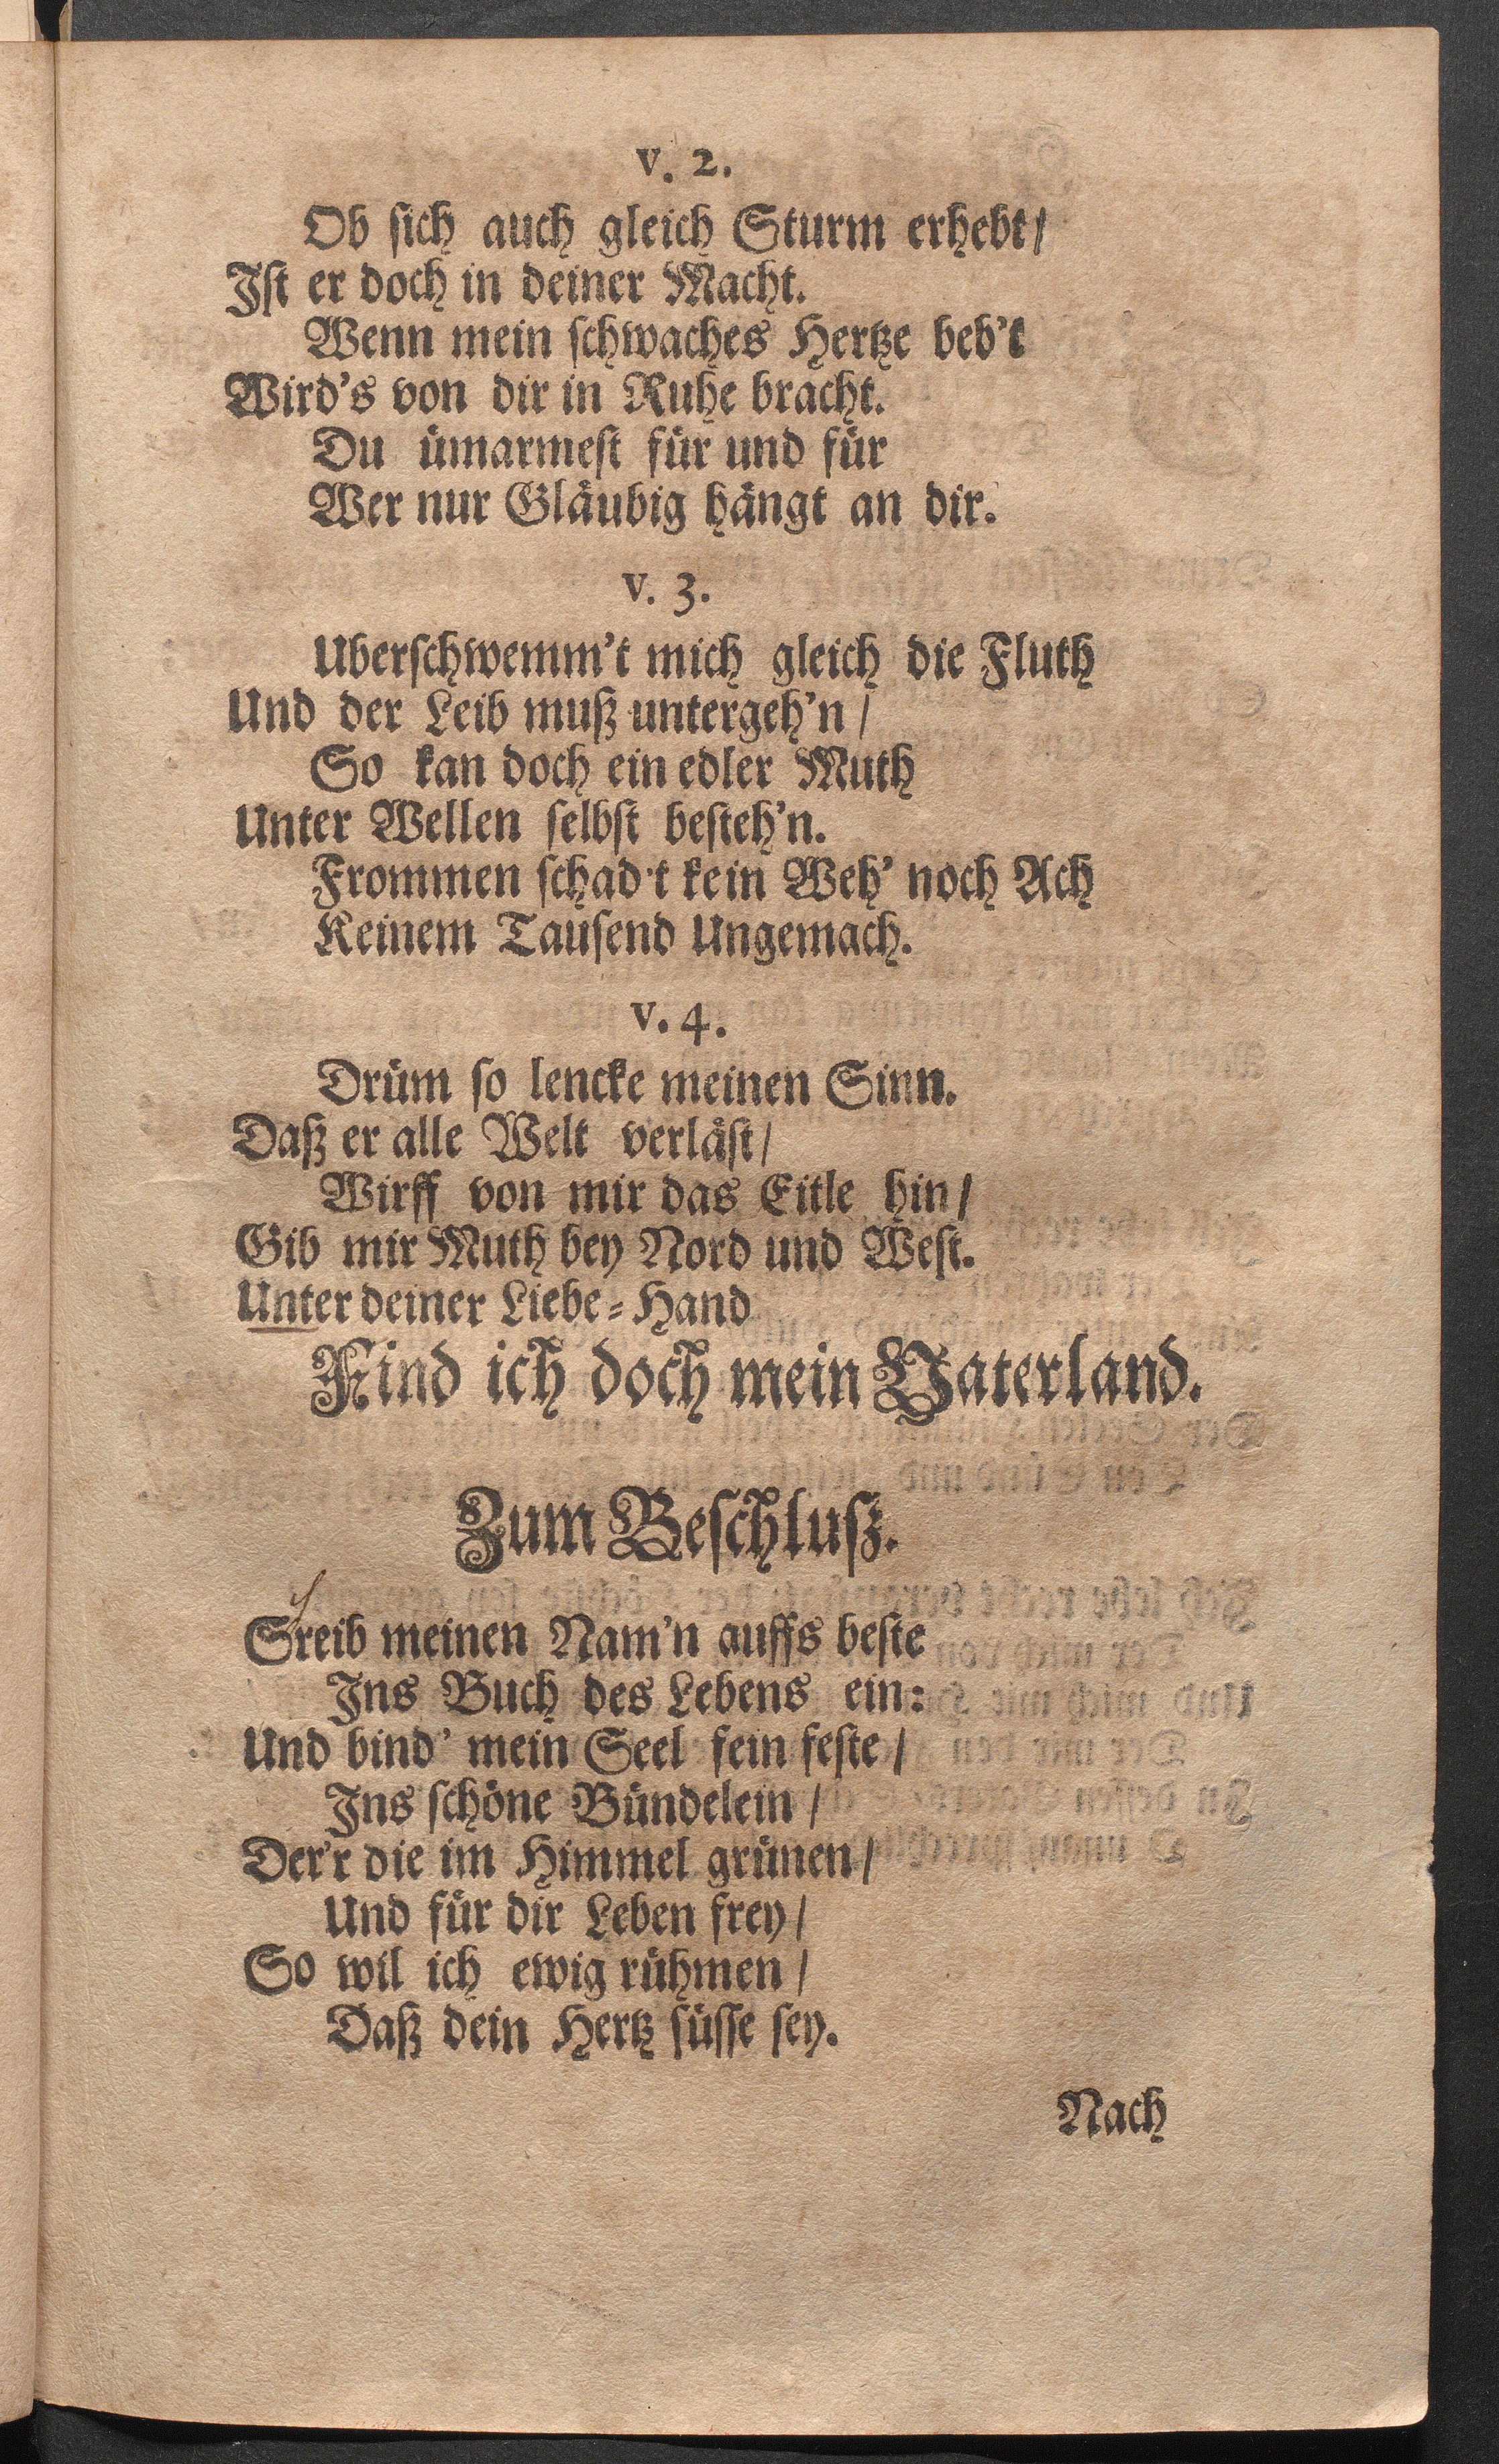 v. 2.
Ob sich auch gleich Sturm erhebt/
Ist er doch in deiner Macht.
Wenn mein schwaches Hertze beb't
Wird's von dir in Ruhe bracht.
Du ümarmest für und für
Wer nur Gläubig hängt an dir.
v. 3.
Uberschwemm't mich gleich die Fluth
Und der Leib muß untergeh'n/
So kan doch ein edler Muth
Unter Wellen selbst besteh'n.
Frommen schad't kein Weh' noch Ach
Keinem Tausend Ungemach.
v. 4.
Drüm so lencke meinen Sinn.
Daß er alle Welt verläst/
Wirff von mir das Eitle hin/
Gib mir Muth bey Nord und West.
Unter deiner Liebe-Hand
Find ich doch mein Vaterland.
Zum Beschluß.
Sreib meinen Nam'n auffs beste
Ins Buch des Lebens ein:
Und bind' mein Seel fein feste/
Ins schöne Bündelein/
Der'r die im Himmel grünen/
Und für dir Leben frey/
So wil ich ewig rühmen/
Daß dein Hertz süsse sey.
Nach